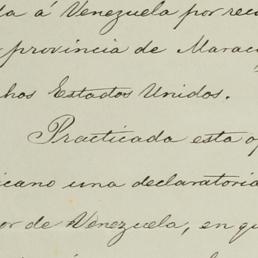 da á Venezuela por reco
provincia de Marac
hos Estados Unidos.
Practicada esta op
icano una declaratoria
or de Venezuela, en qu